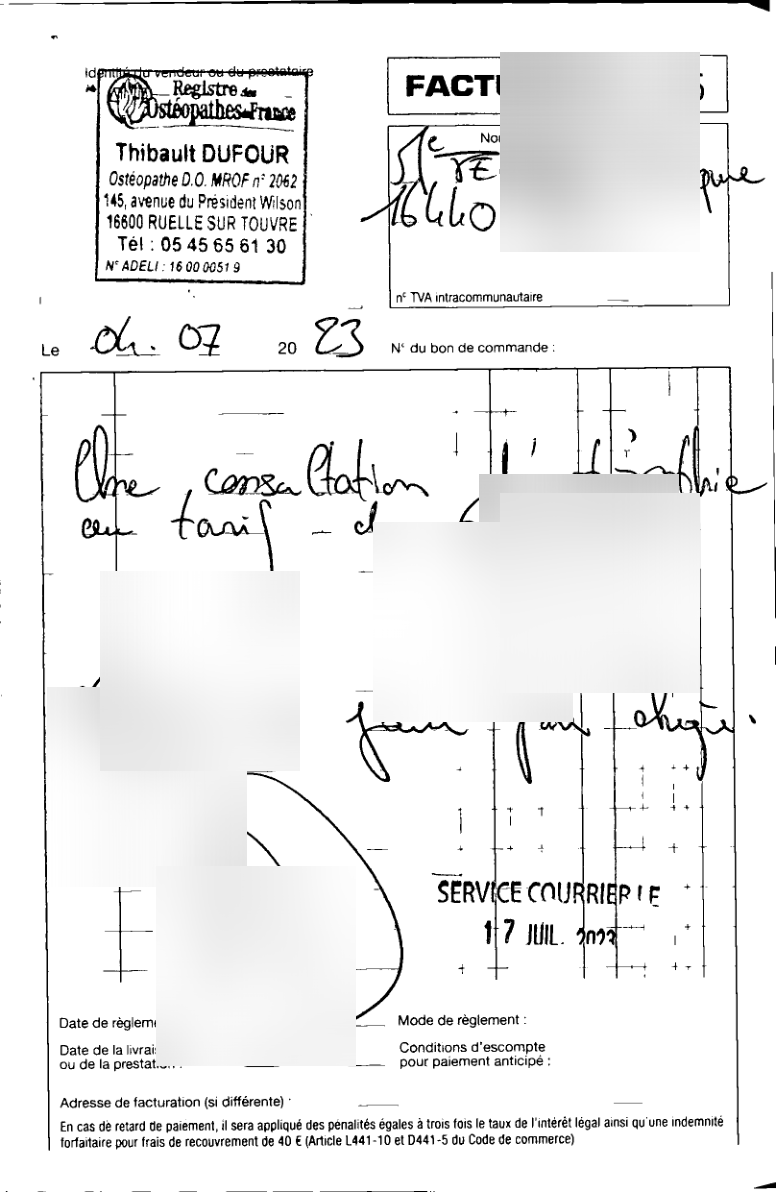 Identité du vendeur ou du prestataire
Registre des
Ostéopathes de France
Thibault DUFOUR
Ostéopathe D.O. MROF n° 2062
145, avenue du Président Wilson
16600 RUELLE SUR TOUVRE
Tél : 05 45 65 61 30
N° ADELI : 16 00 0051 9
FACTU
16440
n° TVA intracommunautaire
Le 04. 07 2023
N° du bon de commande :
Une consultation
au tarif
par chèque.
SERVICE COURRIER LE
17 JUIL. 2023
Date de règlem
Mode de règlement :
Date de la livrai
ou de la prestat
Conditions d'escompte
pour paiement anticipé :
Adresse de facturation (si différente) :
En cas de retard de paiement, il sera appliqué des pénalités égales à trois fois le taux de l'intérêt légal ainsi qu'une indemnité
forfaitaire pour frais de recouvrement de 40 € (Article L441-10 et D441-5 du Code de commerce)